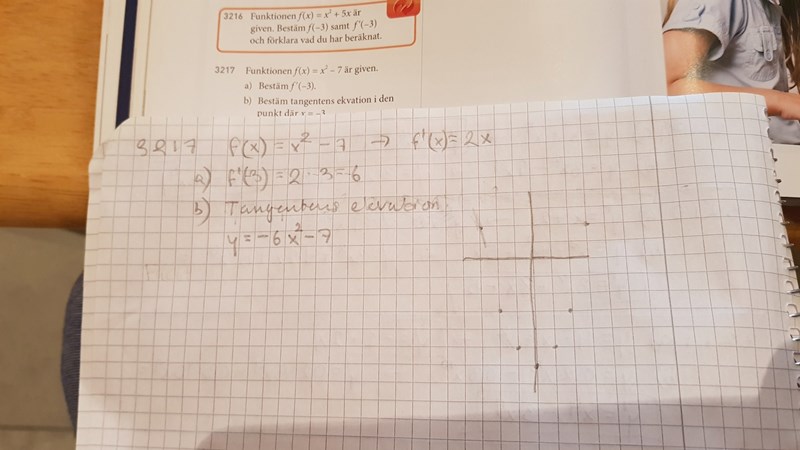 3216 Funktionen f(x) = x² + 5x är
given. Bestäm f(−3) samt f'(−3)
och förklara vad du har beräknat.
3217 Funktionen f(x) = x² − 7 är given.
a) Bestäm f'(−3).
b) Bestäm tangentens ekvation i den
punkt där x = −3
3217 f(x) = x² − 7 → f'(x) = 2x
a) f'(3) = 2 · 3 = 6
b) Tangentens ekvation
y = −6x² − 7